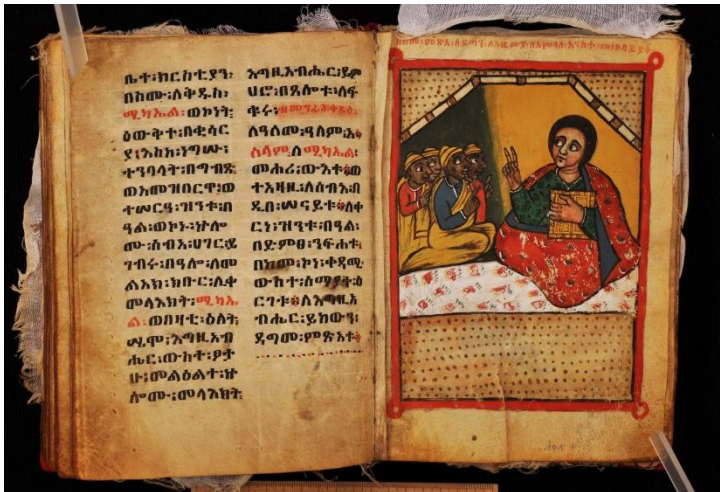 ቤተ፡ክርስቲያን፡
በስሙ፡ለቅዱስ፡
ሚካኤል፡ወኮነት፡
ዕውቅተ፡በቂሳር
ያ፡እስከ፡ነግሡ፡
ተንባላት፡በግብጽ፡
ወአመዝበርዋ፡ወ
ተሠርዓ፡ዝንቱ፡በ
ዓል፡ወኮኑ፡ኵሎ
ሙ፡ሰብአ፡ሀገር፡ይ
ገብሩ፡በዓሎ፡ለመ
ልአክ፡ክቡር፡ሊቀ
መላእክት፡ሚካኤ
ል፡ወበዛቲ፡ዕለት፡
ሤሞ፡እግዚአብ
ሔር፡ውስተ፡
መልዕልተ፡ኵ
ሎሙ፡መላእክት፡
እግዚአብሔር፡ይም
ሀሮ፡በጸሎቱ፡ለፍ
ቁሩ፡
ለዓለመ፡ዓለም፡አ
ሰላም፡ለሚካኤል፡
መሐሪ፡ውእቱ፡ወ
ተአዛዚ፡ለሰብእ፡በ
ዲበ፡ሠናይቱ፡ለቀ
ርነ፡ዝንቱ፡በዓል፡
በድምፀ፡ንፍሐቱ፡
በከመ፡ኮነ፡ቀዳሚ
ውስተ፡ሰማያት፡ዕ
ርገቱ፡ለእግዚአ
ብሔር፡ይከውን፡
ዳግመ፡ምጽአቱ፡